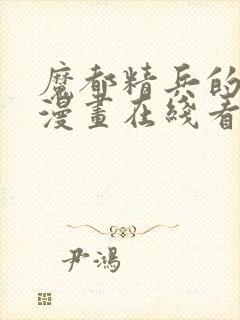 魔都精兵的
漫畫在綫看
尹鴻